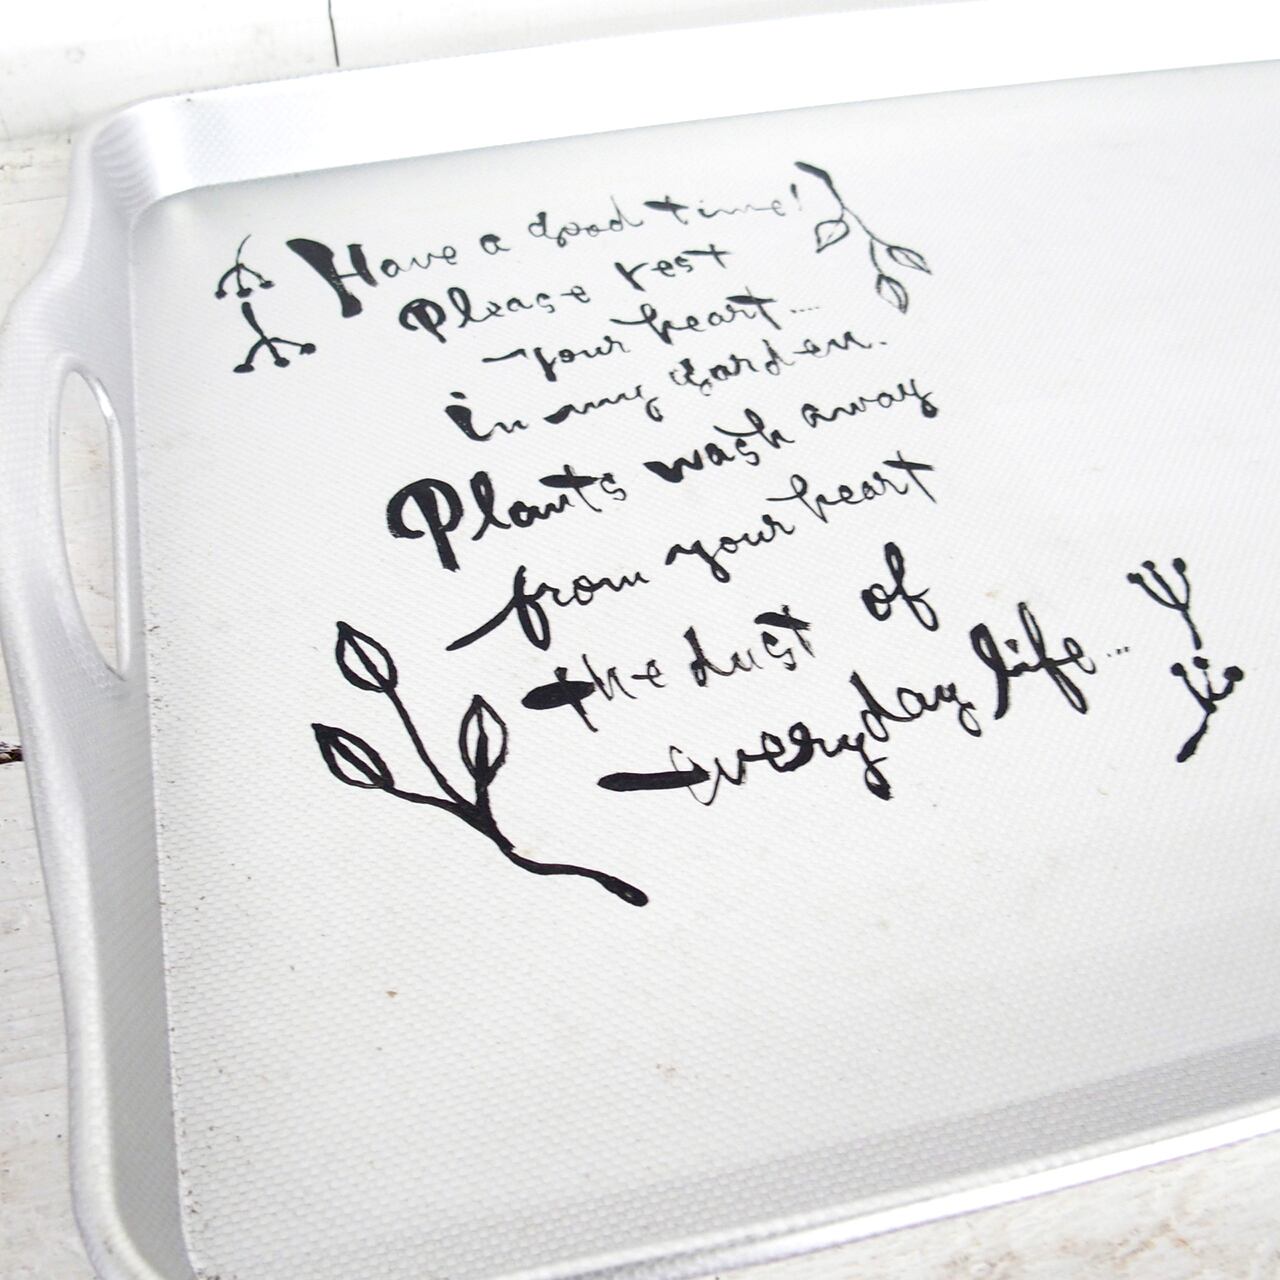 Have a good time!
Please rest
your heart....
in my garden.
Plants wash away
from your heart
the dust of
everyday life...